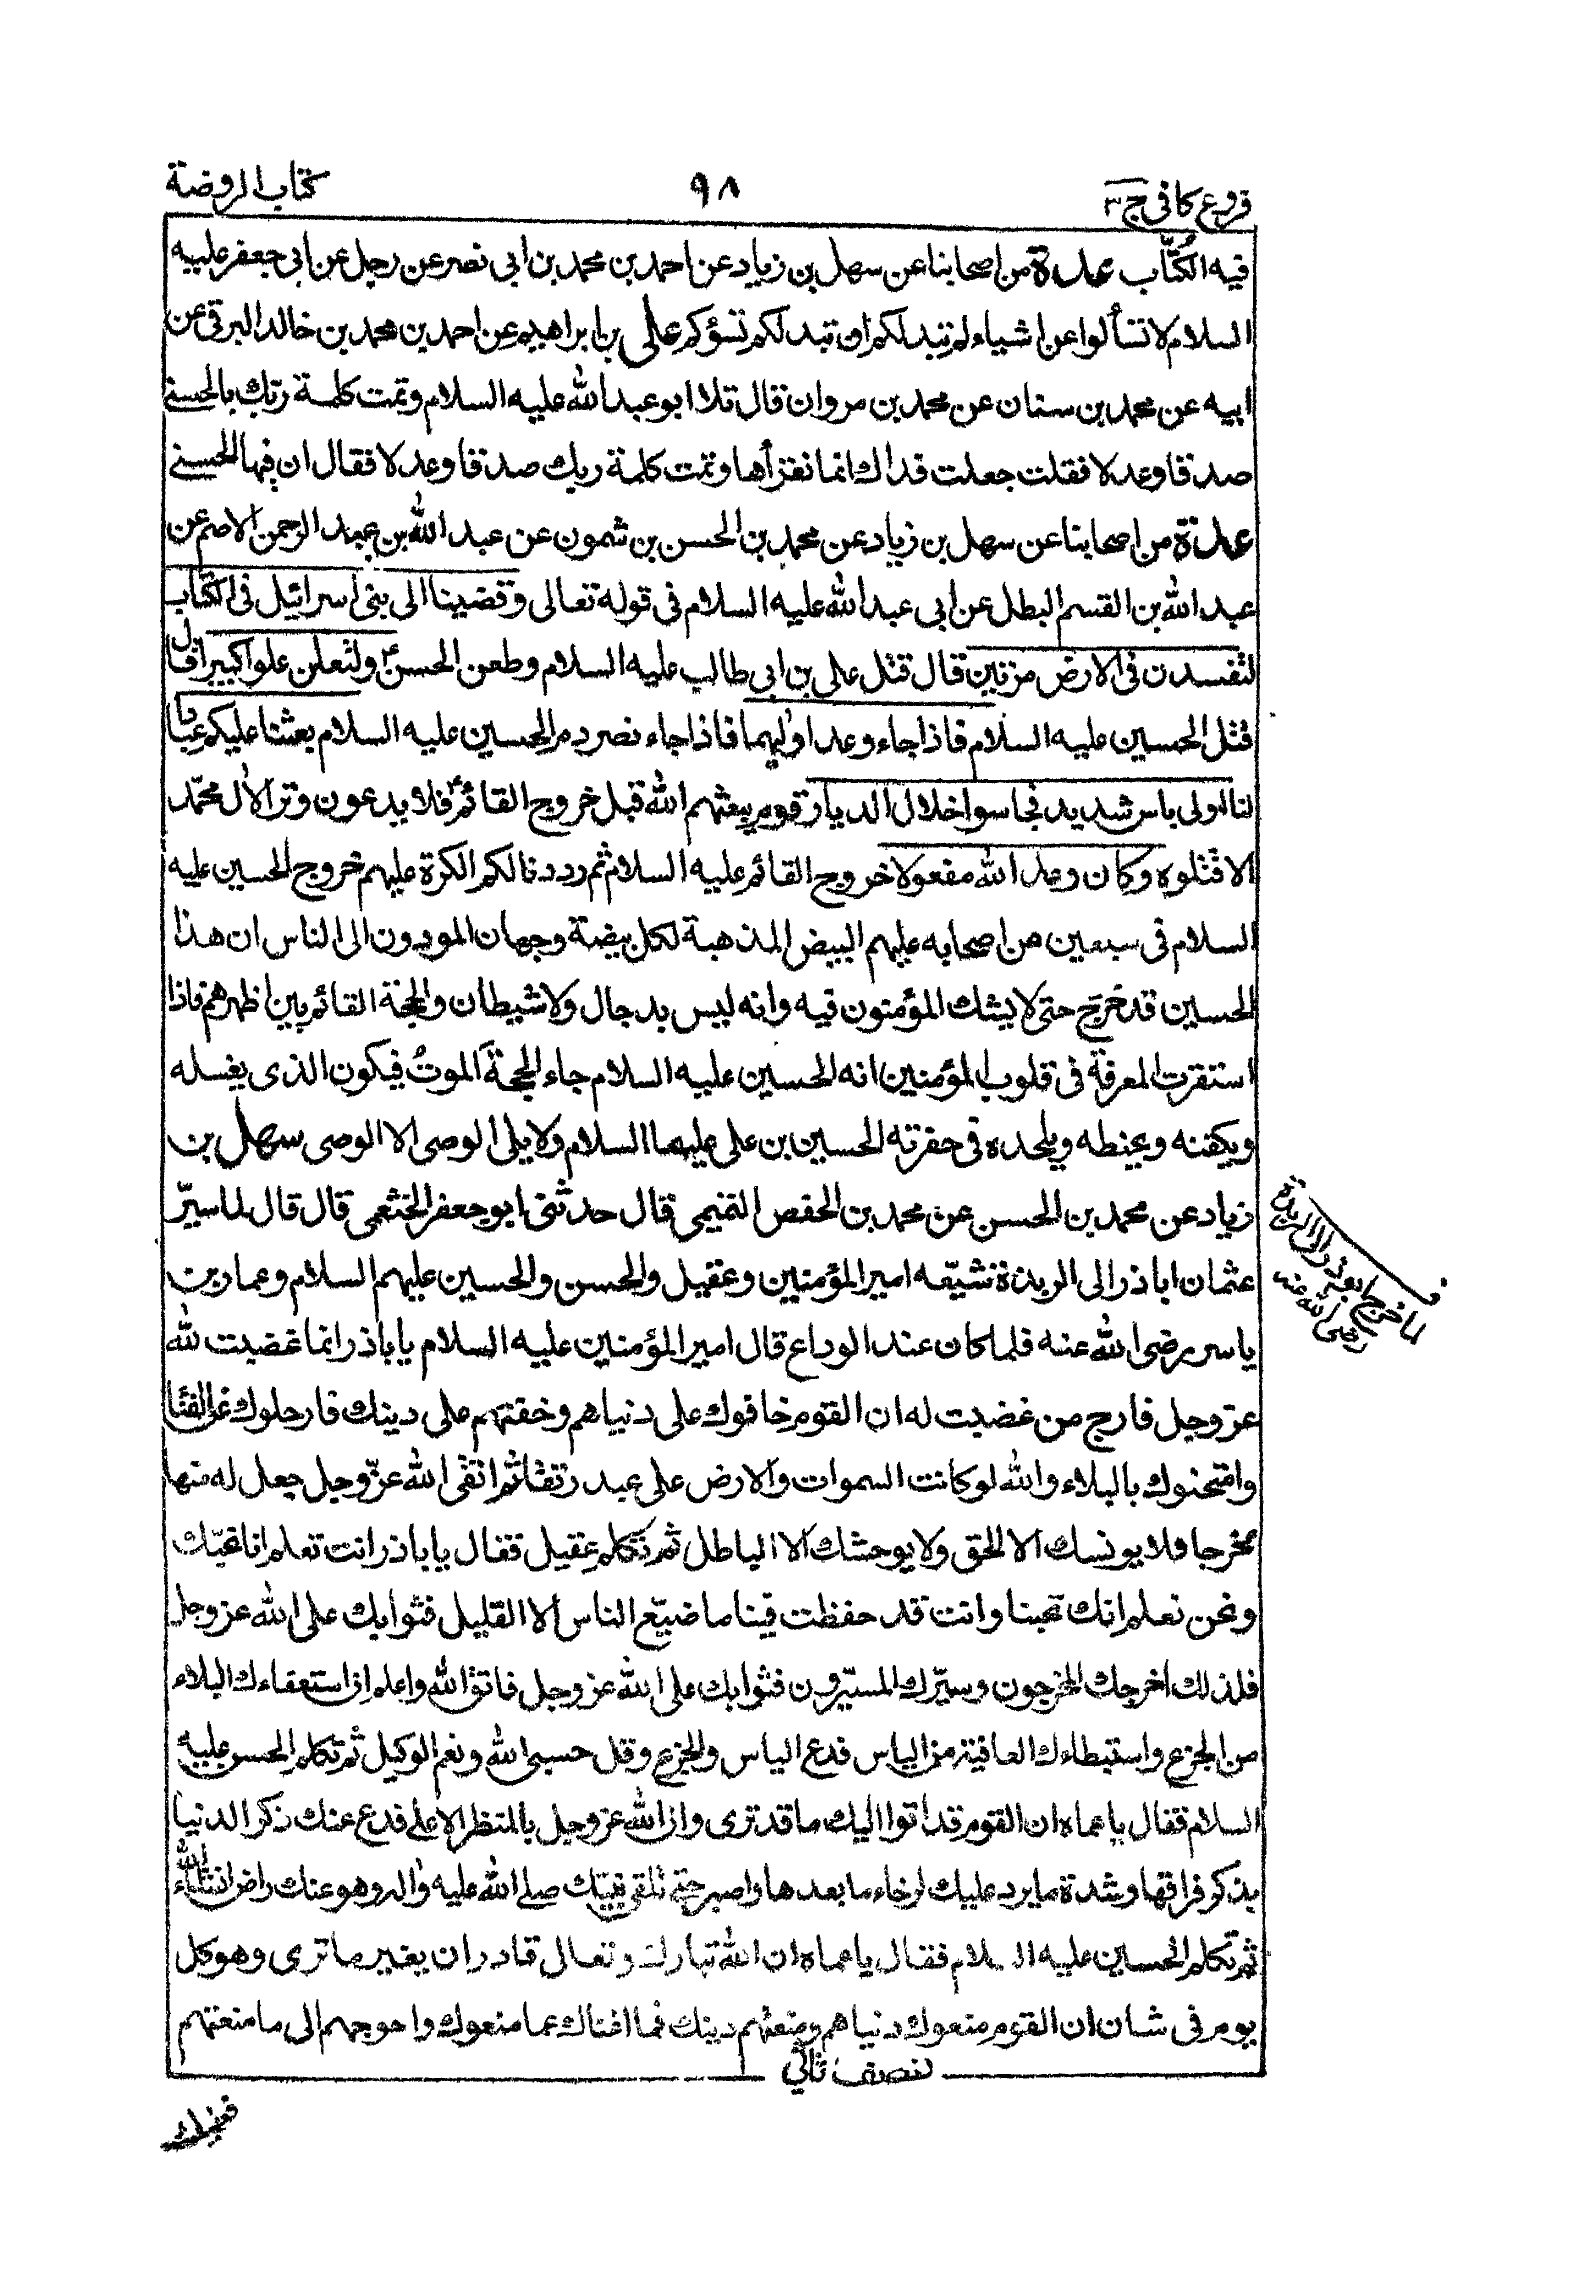 فروع كافى ج ٣
٩٨
كتاب الروضة
فيه الكُتّاب عدة من اصحابنا عن سهل بن زياد عن احمد بن محمد بن ابى نصر عن رجل عن ابى جعفر عليه
السلام لا تسألوا عن اشياء لم تبد لكم ان تبد لكم تسؤكم على بن ابراهيم عن احمد بن محمد بن خالد البرقى عن
ابيه عن محمد بن سنان عن محمد بن مروان قال تلا ابو عبد الله عليه السلام وتمت كلمة ربك بالحسنى
صدقا وعدلا فقلت جعلت فداك انما نقرأها وتمت كلمة ربك صدقا وعدلا فقال ان فيها الحسنى
عدة من اصحابنا عن سهل بن زياد عن محمد بن الحسن بن شمون عن عبد الله بن عبد الرحمن الاصم عن
عبد الله بن القسم البطل عن ابى عبد الله عليه السلام فى قوله تعالى وقضينا الى بنى اسرائيل فى الكتاب
لتفسدن فى الارض مرتين قال قتل على بن ابى طالب عليه السلام وطعن الحسن ع ولتعلن علوا كبيرا قال
قتل الحسين عليه السلام فاذا جاء وعد اوليهما فاذا جاء نصر دم الحسين عليه السلام بعثنا عليكم عبادا
لنا اولى باس شديد فجاسوا خلال الديار قوم يبعثهم الله قبل خروج القائم ع فلا يدعون وترا لآل محمّد
الا قتلوه وكان وعد الله مفعولا خروج القائم عليه السلام ثم رددنا لكم الكرة عليهم خروج الحسين عليه
السلام فى سبعين من اصحابه عليهم البيض المذهبة لكل بيضة وجهان المودون الى الناس ان هذا
الحسين قد خرج حتى لا يشك المؤمنون فيه وانه ليس بدجال ولا شيطان والحجة القائم بين اظهرهم فاذا
استقرت المعرفة فى قلوب المؤمنين انه الحسين عليه السلام جاء الحجةَ الموتُ فيكون الذى يغسله
ويكفنه ويحنطه ويلحده فى حفرته الحسين بن على عليهما السلام ولا يلى الوصى الا الوصى سهل بن
زياد عن محمد بن الحسن عن محمد بن الحفص التميمى قال حدثنى ابو جعفر الخثعمى قال قال لما سيّر
عثمان اباذر الى الربذة شيّعه امير المؤمنين وعقيل والحسن والحسين عليهم السلام وعمار بن
ياسر رضى الله عنه فلما كان عند الوداع قال امير المؤمنين عليه السلام يا باذر انما غضبت لله
عز وجل فارج من غضبت له ان القوم خافوك على دنياهم وخفتهم على دينك فارحلوك عن الفنا
وامتحنوك بالبلاء والله لو كانت السموات والارض على عبد رتقا ثم اتقى الله عزّ وجل جعل له منها
مخرجا فلا يونسك الا الحق ولا يوحشك الا الباطل ثم تكلم عقيل فقال يا باذر انت تعلم انا نحبّك
ونحن نعلم انك تحبنا وانت قد حفظت فينا ما ضيّع الناس الا القليل فثوابك على الله عز وجل
فلذلك اخرجك المخرجون وسيّرك المسيّرون فثوابك على الله عز وجل فاتق الله واعلم ان استعفاءك البلاء
من الجزع واستبطاءك العافية من الياس فدع الياس والجزع وقل حسبى الله ونعم الوكيل ثم تكلم الحسن عليه
السلام فقال يا عماه ان القوم قد اتوا اليك ما قد ترى وان الله عز وجل بالمنظر الاعلى فدع عنك ذكر الدنيا
بذكر فراقها وشدة ما يرد عليك لرخاء ما بعدها واصبر حتى تلقى نبيّك صلى الله عليه وآله وهو عنك راض ان شاء الله
ثم تكلم الحسين عليه السلام فقال يا عماه ان الله تبارك وتعالى قادر ان يغير ما ترى وهو كل
يوم فى شان ان القوم منعوك دنياهم ومنعتهم دينك فما اغناك عما منعوك واحوجهم الى ما منعتهم
نصف ثانى
فعليك
لما خرج ابوذر الى الربذة
رضى الله عنه